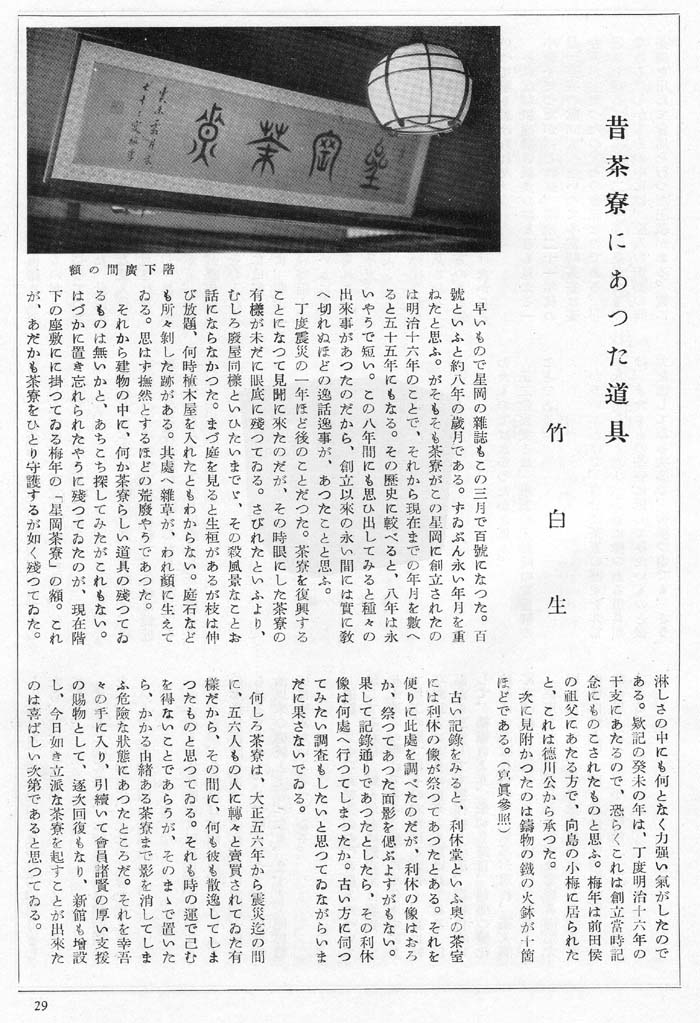 昔茶寮にあつた道具
竹白生
階下廣間の額
早いもので星岡の雜誌もこの三月で百號になつた。百
號といふと約八年の歲月である。すゐぶん永い年月を重
ねたと思ふ。がそもそも茶寮がこの星岡に創立されたの
は明治十六年のことで、それから現在までの年月を數へ
ると五十五年にもなる。その歷史に較べると、八年は永
いやうで短い。この八年間にも思ひ出してみると種々の
出來事があつたのだから、創立以來の永い間には實に敎
へ切れぬほどの逸話逸事が、あつたことと思ふ。
丁度震災の一年ほど後のことだつた。茶寮を復興する
ことになつて見聞に來たのだが、その時眼にした茶寮の
有樣が未だに眼底に殘つてゐる。さびれたといふより、
むしろ廢屋同樣といひたいまでゞ、その殺風景なことお
話にならなかつた。まづ庭を見ると生垣があるが枝は伸
び放題、何時植木屋を入れたともわからない。庭石など
も所々剝した跡がある。其處へ雜草が、われ顏に生えて
ゐる。思はず撫然とするほどの荒廢やうであつた。
それから建物の中に、何か茶寮らしい道具の殘つてゐ
るものは無いかと、あちこち探してみたがこれもない。
はづかに置き忘れられたやうに殘つてゐたのが、現在階
下の座敷にに掛つてゐる梅年の「星岡茶寮」の額。これ
が、あだかも茶寮をひとり守護するが如く殘つてゐた。
淋しさの中にも何となく力强い氣がしたので
ある。欵記の癸未の年は、丁度明治十六年の
干支にあたるので、恐らくこれは創立當時記
念にものこされたものと思ふ。梅年は前田侯
の祖父にあたる方で、向島の小梅に居られた
と、これは德川公から承つた。
次に見附かつたのは鑄物の鐵の火鉢が十箇
ほどである。(寫眞參照)
古い記錄をみると、利休堂といふ奧の茶室
には利休の像が祭つてあつたとある。それを
便りに此處を調べたのだが、利休の像はおろ
か、祭つてあつた面影を偲ぶよすがもない。
果して記錄通りであつたとしたら、その利休
像は何處へ行つてしまつたか。古い方に伺つ
てみたい調査もしたいと思つてゐながらいま
だに果さないでゐる。
何しろ茶寮は、大正五六年から震災迄の間
に、五六人もの人に轉々と賣買されてゐた有
樣だから、その間に、何も彼も散逸してしま
つたものと思つてゐる。それも時の運で已む
を得ないことであらうが、そのまゝで置いた
ら、かかる由緒ある茶寮まで影を消してしま
ふ危險な狀態にあつたところだ。それを幸吾
々の手に入り、引續いて會員諸賢の厚い支援
の賜物として、逐次回復もなり、新館も增設
し、今日如き立派な茶寮を起すことが出來た
のは喜ばしい次第であると思つてゐる。
29